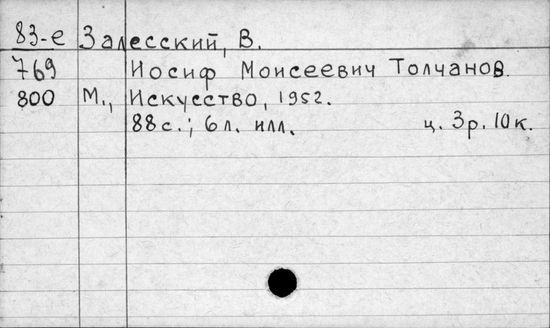 83-е Залесский, В.
769 Иосиф Моисеевич Толчанов
800 М., Искусство, 1952.
88 с.; 6 л. илл. ц. 3 р. 10 к.